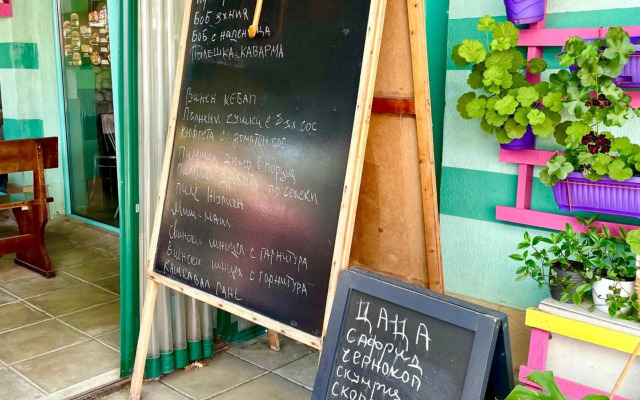 боб яхния
боб с наденица
Пилешка каварма
Винен кебап
Пълнени чушки с бял сос
кюфтета с доматен сос
Пилешки дюнер в порция
Пилешки дробчета по селски
Пиле Жулиен
Миш-маш
Свински шницел с гарнитура
Виенски шницел с гарнитура
Кашкавал пане
ЦАЦА
САФРИД
ЧЕРНОКОП
СКУМРИЯ